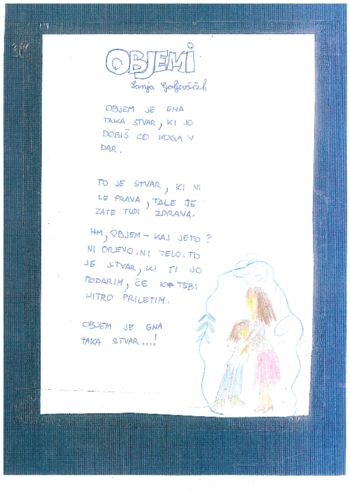 OBJEMI
OBJEM JE ENA
TAKA STVAR, KI JO
DOBIŠ OD KOGA V
DAR.
TO JE STVAR, KI NI
LE PRAVA, TALE JE
ZATE TUDI ZDRAVA.
HM, OBJEM - KAJ JE TO?
NI DREVO, NI TELO. TO
JE STVAR, KI TI JO
PODARIM, ČE K TEBI
HITRO PRILETIM.
OBJEM JE ENA
TAKA STVAR...!